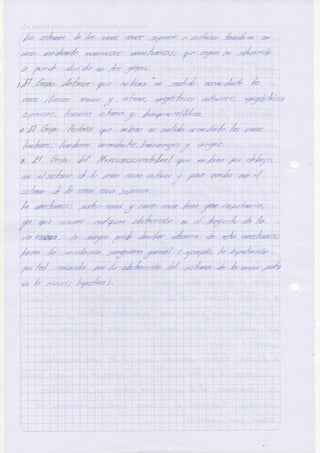 Los sistemas de las venas cavas superior e inferior también se
unen mediante numerosas anastomosis, que según su situación
se puede dividir en tres grupos.
1. El Grupo Anterior que se ubica en sentido ascendente los
venas ilíacas externa y interna, epigástricas inferiores, epigástricas
superiores, torácica interna y braquiocefálica.
2. El Grupo Posterior que en sentido ascendente las venas
lumbares, lumbares ascendentes, hemiácigos y ácigos.
3. El Grupo del que por debajo
con el sistema de la vena cava inferior y para arriba con el
sistema de la vena cava superior.
La anastomosis porto-cava y cavo-cava tiene gran importancia,
ya que ocurre cualquier obstrucción en el trayecto de la
vía la sangre puede derivar através de esta anastomosis
hacia la circulación sanguínea general (ejemplo, la hipertensión
portal causada por la obstrucción del sistema de la vena porta
en la cirrosis hepática).